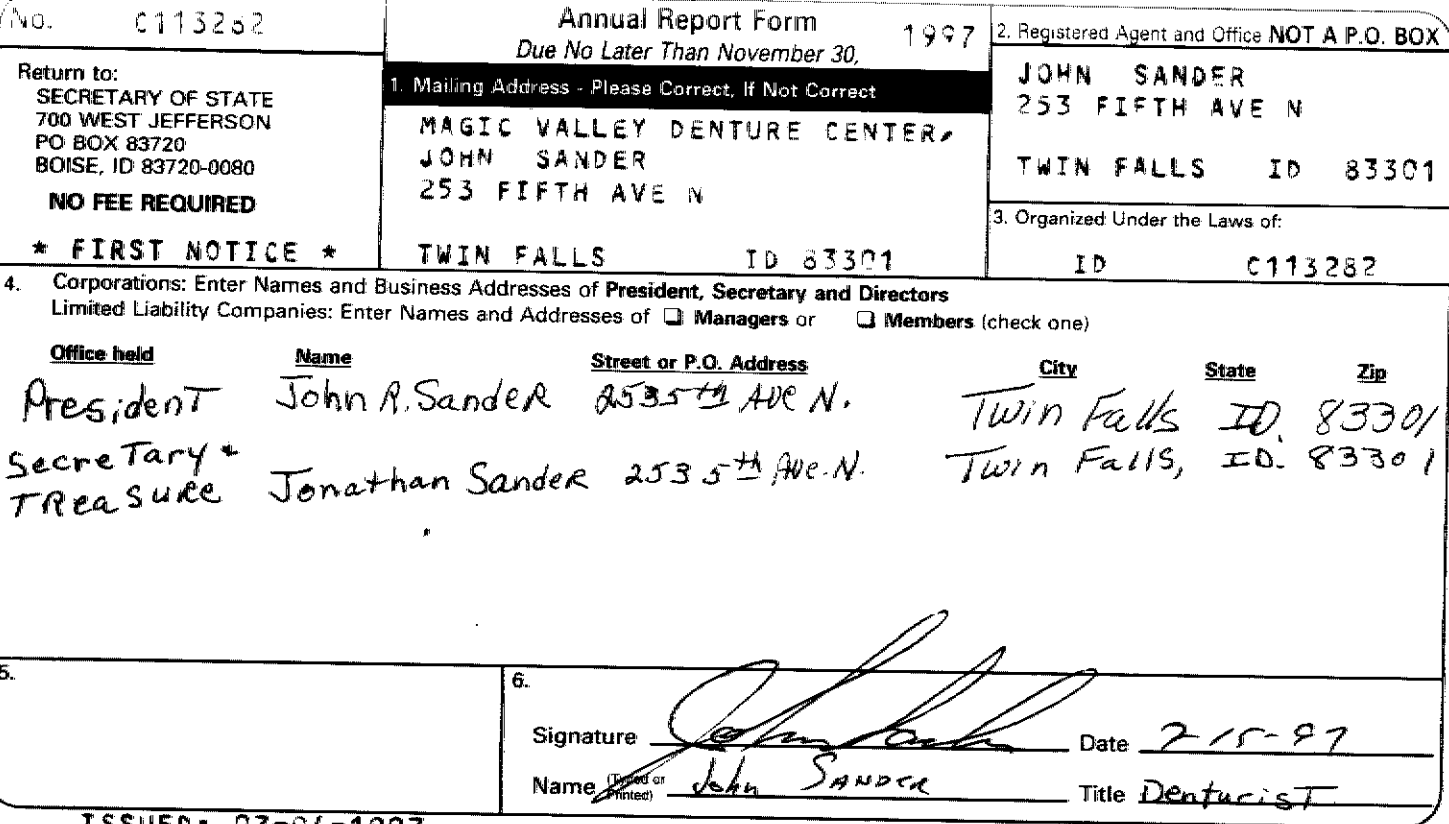 No. C113282
Annual Report Form 1997
Due No Later Than November 30,
Return to:
SECRETARY OF STATE
700 WEST JEFFERSON
PO BOX 83720
BOISE, ID 83720-0080
NO FEE REQUIRED
* FIRST NOTICE *
1. Mailing Address - Please Correct, If Not Correct
MAGIC VALLEY DENTURE CENTER,
JOHN SANDER
253 FIFTH AVE N
TWIN FALLS ID 83301
2. Registered Agent and Office NOT A P.O. BOX
JOHN SANDER
253 FIFTH AVE N
TWIN FALLS ID 83301
3. Organized Under the Laws of:
ID C113282
4. Corporations: Enter Names and Business Addresses of President, Secretary and Directors
Limited Liability Companies: Enter Names and Addresses of ❑ Managers or ❑ Members (check one)
Office held Name Street or P.O. Address City State Zip
President John R. Sander 253 5th Ave N. Twin Falls ID. 83301
Secretary +
Treasure Jonathan Sander 253 5th Ave. N. Twin Falls, ID. 83301
5.
6.
Signature Date 7-15-97
Name (Typed or Printed) John Sander Title Denturist
ISSUED: